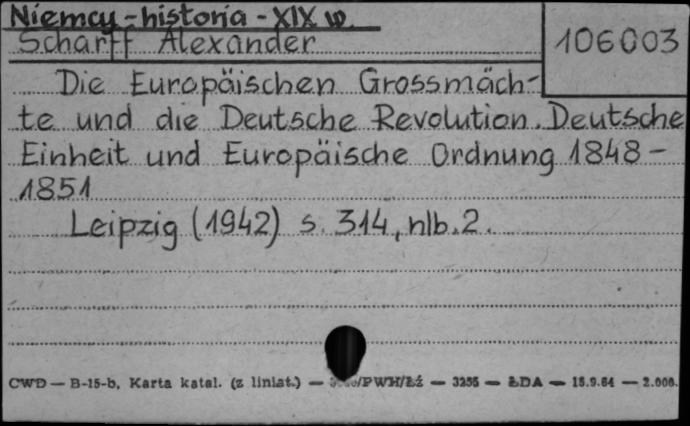 Niemcy - historia - XIX w.
Scharff Alexander
106003
Die Europäischen Grossmäch-
te und die Deutsche Revolution. Deutsche
Einheit und Europäische Ordnung 1848 -
1851
Leipzig (1942) s. 314, nlb. 2.
CWD — B-15-b, Karta katal. (z liniat.) — /PWH/Łź — 3255 — ŁDA — 15.9.64 — 2.000.